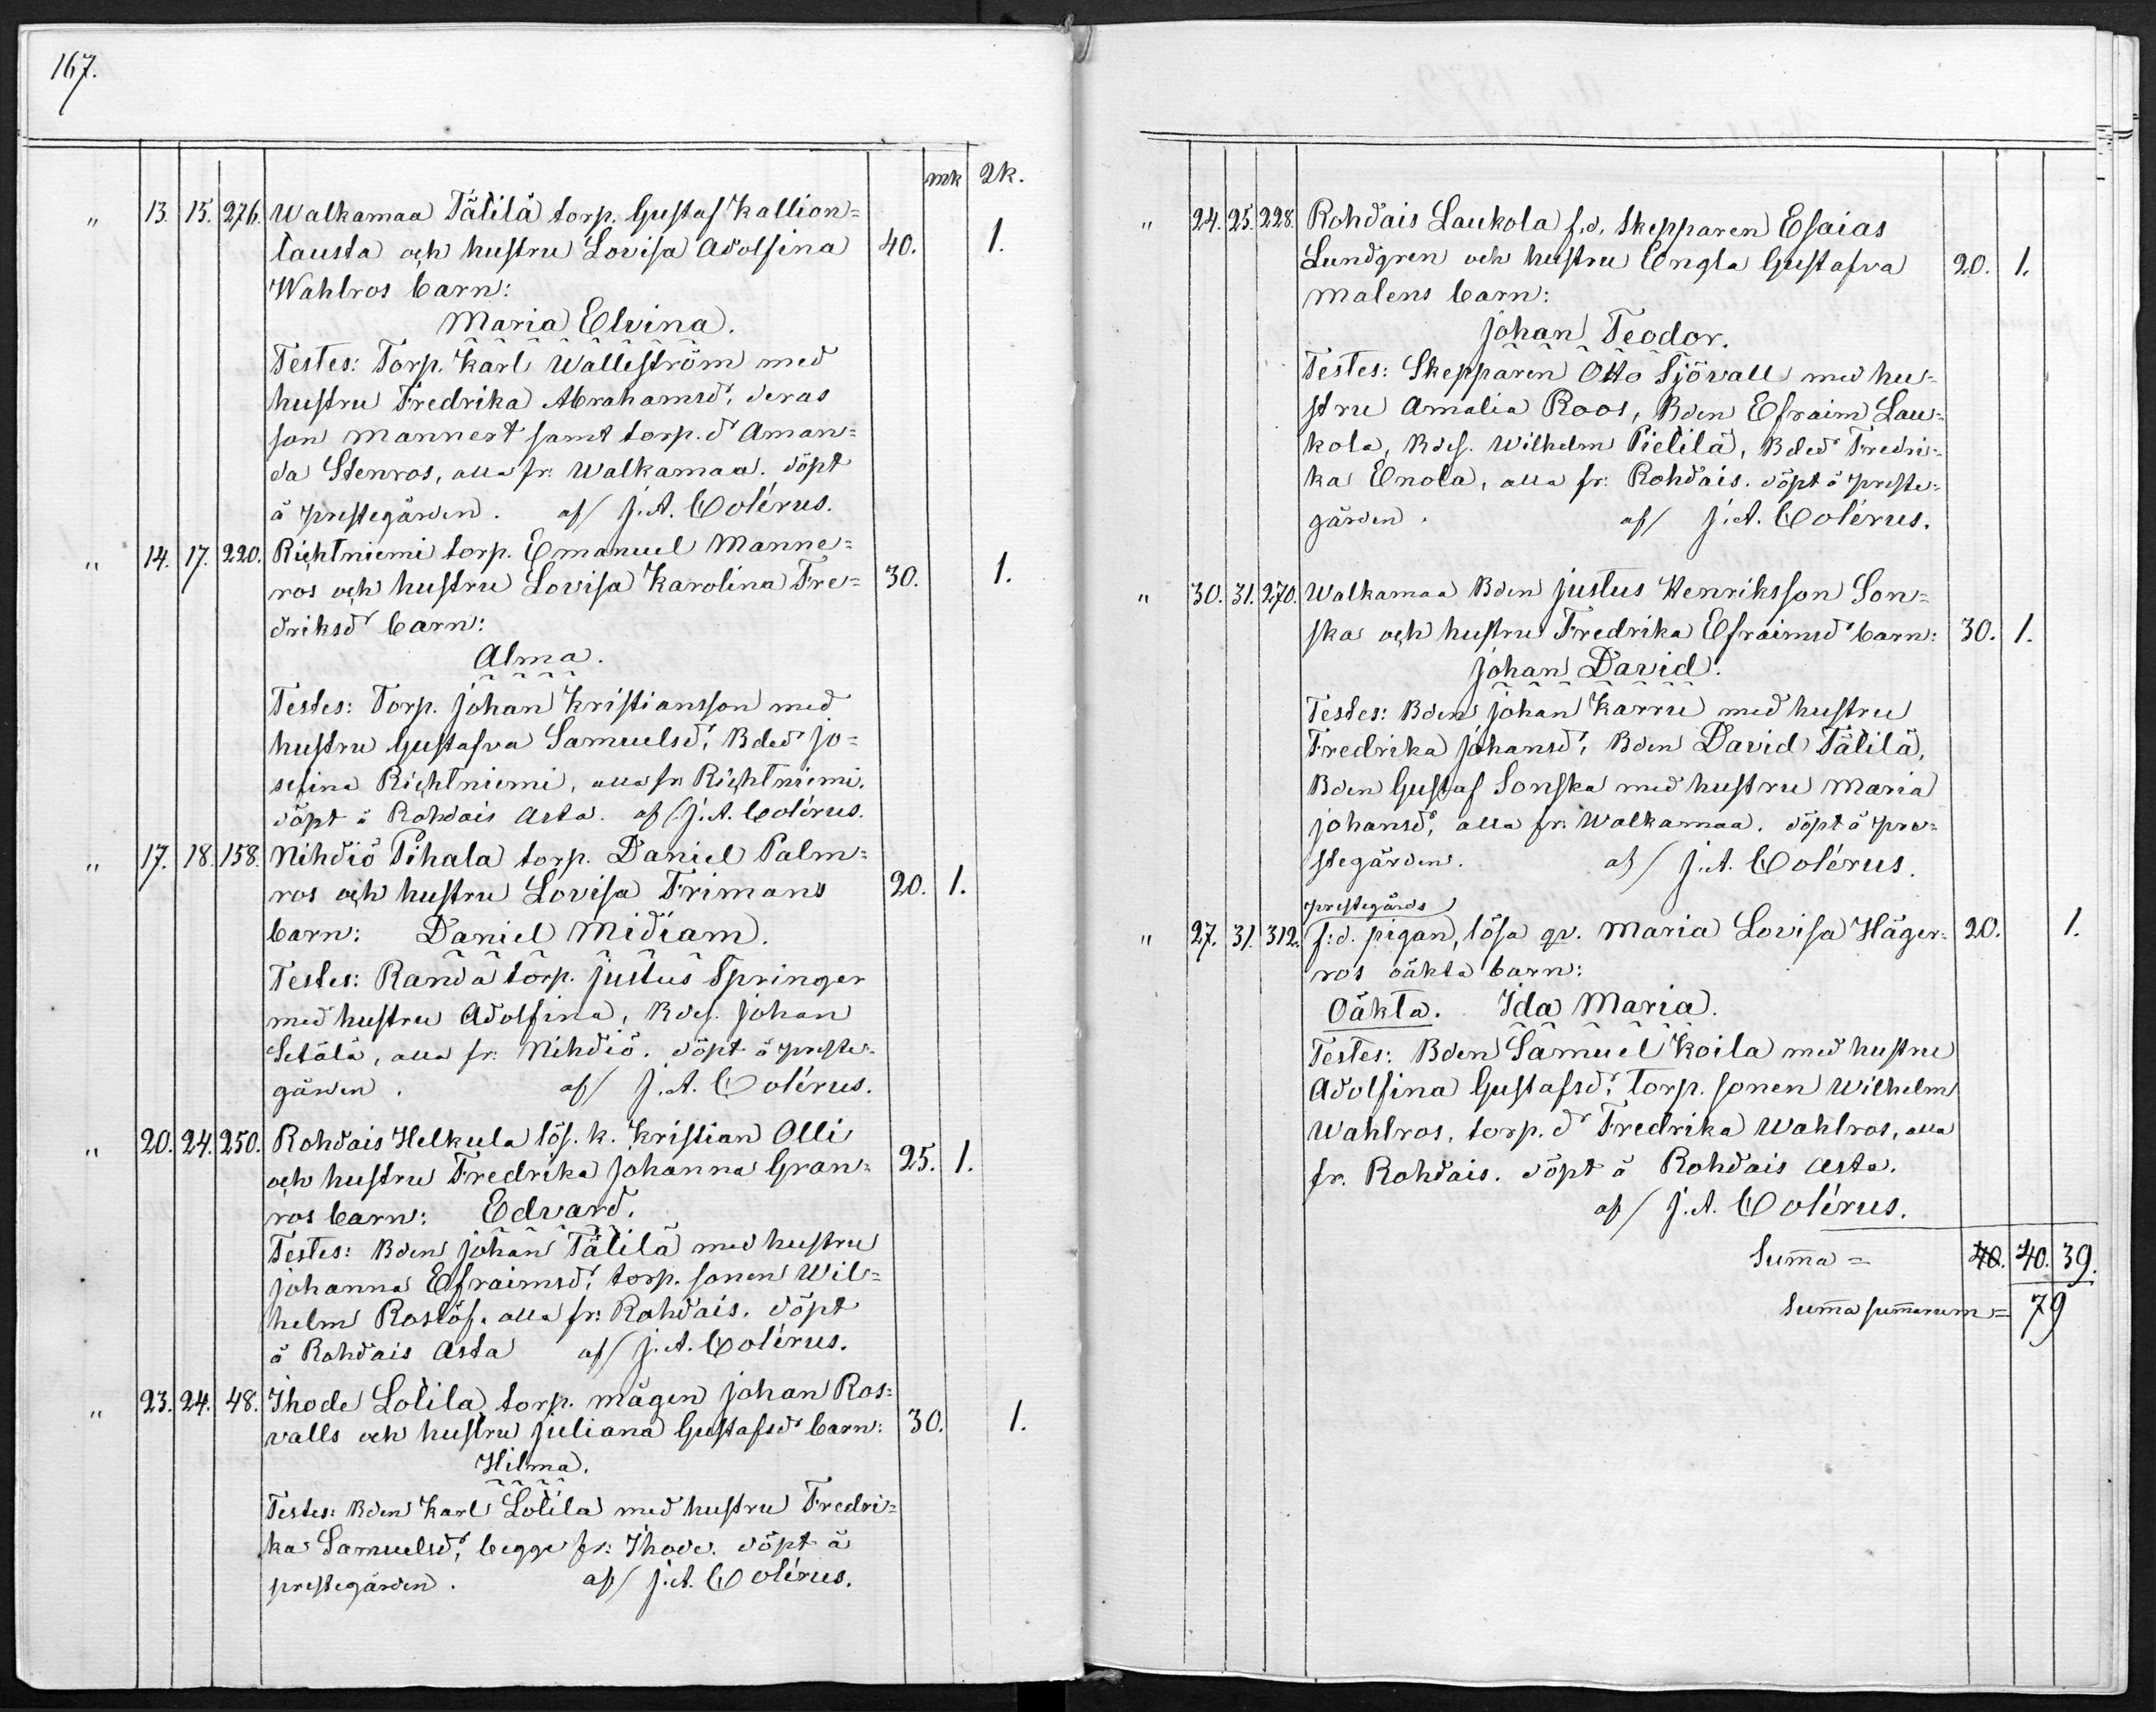 167.
mk qk.
" 13. 15. 276. Walkamaa Tälilä torp. Gustaf Kallion=
tausta och hustru Lovisa Adolfina 40. 1.
Wahlros barn:
Maria Elvina.
Testes: Torp. Karl Walleström med
hustru Fredrika Abrahamsdr, deras
son Mannert samt torp.dr Aman=
da Stenros, alla fr. Walkamaa. döpt
å prestegården. af/ J.A. Colérus.
" 14. 17. 220. Richtniemi torp. Emanuel Manne=
ros och hustru Lovisa Karolina Fre= 30. 1.
driksdr barn:
Alma.
Testes: Torp. Johan Kristiansson med
hustru Gustafva Samuelsdr, Bdedr Jo=
sefina Richtniemi, alla fr. Richtniemi.
döpt å Rohdais Asta. af/ J.A. Colérus.
" 17. 18. 158. Nihdiö Pihala torp. Daniel Palm=
ros och hustru Lovisa Frimans 20. 1.
barn: Daniel Midiam.
Testes: Randa torp. Justus Springer
med hustru Adolfina, Bdes. Johan
Setälä, alla fr. Nihdiö. döpt å preste=
gården. af/ J.A. Colérus.
" 20. 24. 250. Rohdais Helkula lös. k. Kristian Olli
och hustru Fredrika Johanna Gran= 25. 1.
ros barn: Edvard.
Testes: Bden Johan Tälilä med hustru
Johanna Efraimsdr, torp. sonen Wil=
helm Roslöf. alla fr: Rohdais. döpt
å Rohdais Asta af/ J.A. Colérus.
" 23. 24. 48. Ihode Lolila torp. mågen Johan Ros=
valls och hustru Juliana Gustafsdr barn: 30. 1.
Hilma.
Testes: Bden Karl Lolila med hustru Fredri=
ka Samuelsdr, begge fr: Ihode. döpt å
prestegården. af/ J.A. Colérus.
" 24. 25. 228. Rohdais Laukola f.d. Skepparen Esaias
Lundgren och hustru Engla Gustafva 20. 1.
Malens barn:
Johan Teodor.
Testes: Skepparen Otto Sjövall med hu=
stru Amalia Roos, Bden Efraim Lau=
kola, Bdes. Wilhelm Pietilä, Bdedr Fredri=
ka Enola, alla fr: Rohdais. döpt å preste=
gården. af/ J.A. Colérus.
" 30. 31. 270. Walkamaa Bden Justus Henriksson Son=
ska och hustru Fredrika Efraimsdr barn: 30. 1.
Johan David.
Testes: Bden Johan Karru med hustru
Fredrika Johansdr, Bden David Tälilä,
Bden Gustaf Sonska med hustru Maria
Johansdr, alla fr. Walkamaa. döpt å pre=
stegården. af/ J.A. Colérus.
prestegårds
" 27. 31. 312. f:d. pigan, lösa qv. Maria Lovisa Häger= 20. 1.
ros oäkta barn:
Oäkta. Ida Maria.
Testes: Bden Samuel Koila med hustru
Adolfina Gustafsdr, torp. sonen Wilhelm
Wahlros, torp.dr Fredrika Wahlros, alla
fr. Rohdais. döpt å Rohdais Asta.
af/ J.A. Colérus.
Summa = 40. 40. 39.
Summa summarum = 79